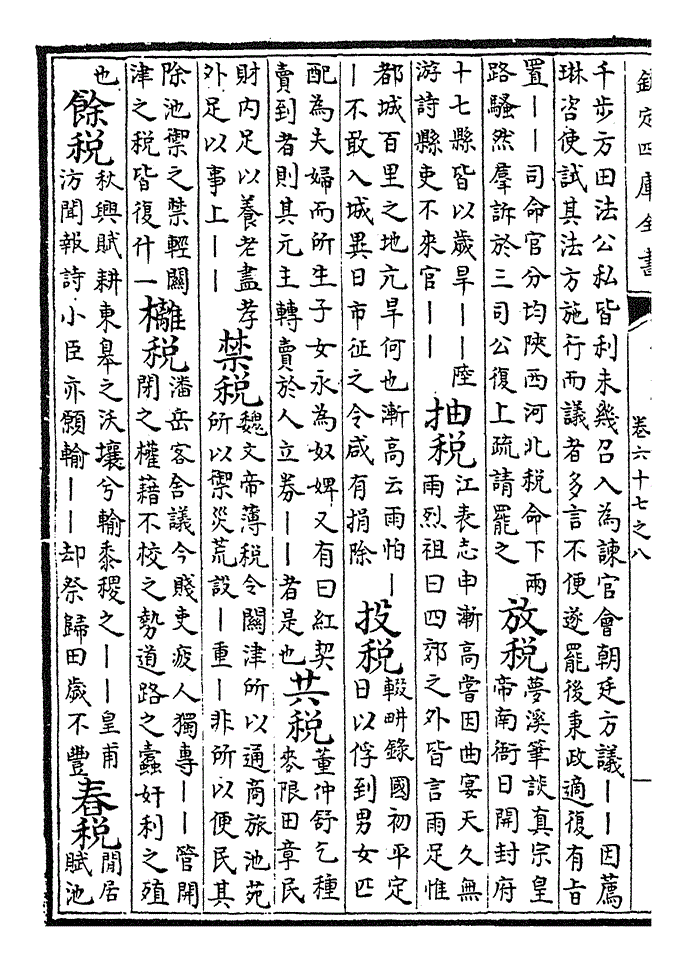 欽定四庫全書
卷六十七之八
千步方田法公私皆利未幾召入為諫官會朝廷方議——因薦
琳咨使試其法方施行而議者多言不便遂罷後秉政適復有旨
置——司命官分均陝西河北稅命下兩
路騷然羣訴於三司公復上疏請罷之
放稅
夢溪筆談真宗皇
帝南衙日開封府
十七縣皆以歲旱——陸
游詩縣吏不來官——
抽稅
江表志申漸高嘗因曲宴天久無
雨烈祖曰四郊之外皆言雨足惟
都城百里之地亢旱何也漸高云雨怕—
—不敢入城異日市征之令咸有捐除
投稅
輟畊錄國初平定
日以俘到男女匹
配為夫婦而所生子女永為奴婢又有曰紅契
賣到者則其元主轉賣於人立券——者是也
共稅
董仲舒乞種
麥限田章民
財內足以養老盡孝
外足以事上——
禁稅
魏文帝薄稅令關津所以通商旅池苑
所以禦災荒設—重—非所以便民其
除池禦之禁輕關
津之稅皆復什一
㰚稅
潘岳客舍議今賤吏疲人獨專——管開
閉之權藉不校之勢道路之蠹奸利之殖
也
餘稅
秋興賦耕東皋之沃壤兮輸黍稷之——皇甫
汸聞報詩小臣亦願輸——却祭歸田歲不豐
春稅
閒居
賦池